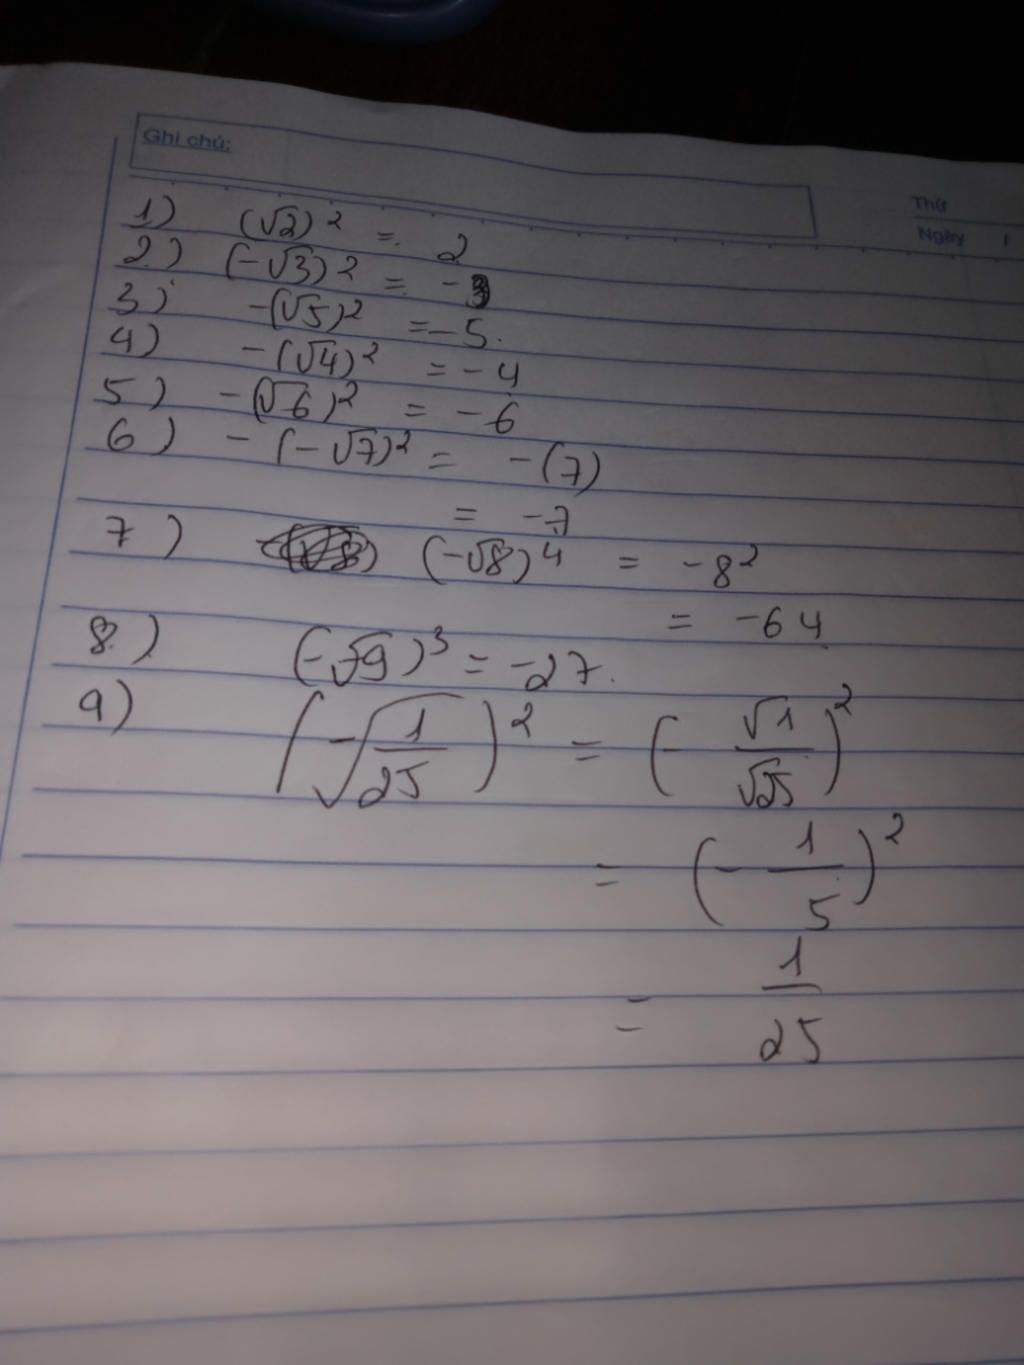 Ghi chú:
Thứ
Ngày /
1) (√2)² = 2
2) (-√3)² = -3
3) -(√5)² = -5.
4) -(√4)² = -4
5) -(√6)² = -6
6) -(-√7)² = -(7)
= -7
7) (-√8)⁴ = -8²
= -64
8) (-√9)³ = -27.
9) (-√(1/25))² = (-√1/√25)²
= (-1/5)²
= 1/25